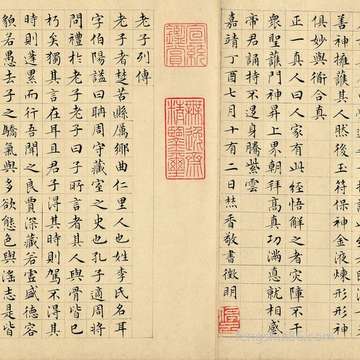 善神擁護其人然後玉符保神金液煉形形神
俱妙與衟合真
正一真人曰人家有此經悟解之者灾障不干
衆聖護門神昇上界朝拜高真功滿惪就相感
帝君誦持不退身騰紫雲
嘉靖丁酉七月十有二日焚香敬書徵明
老子列傳
老子者楚苦縣厲鄉曲仁里人也姓李氏名耳
字伯陽謚曰聃周守藏室之史也孔子適周將
問禮於老子老子曰子所言者其人與骨皆已
朽矣獨其言在耳且君子得其時則駕不得其
時則蓬累而行吾聞之良賈深藏若虛盛德容
貌若愚去子之驕氣與多欲態色與淫志是皆